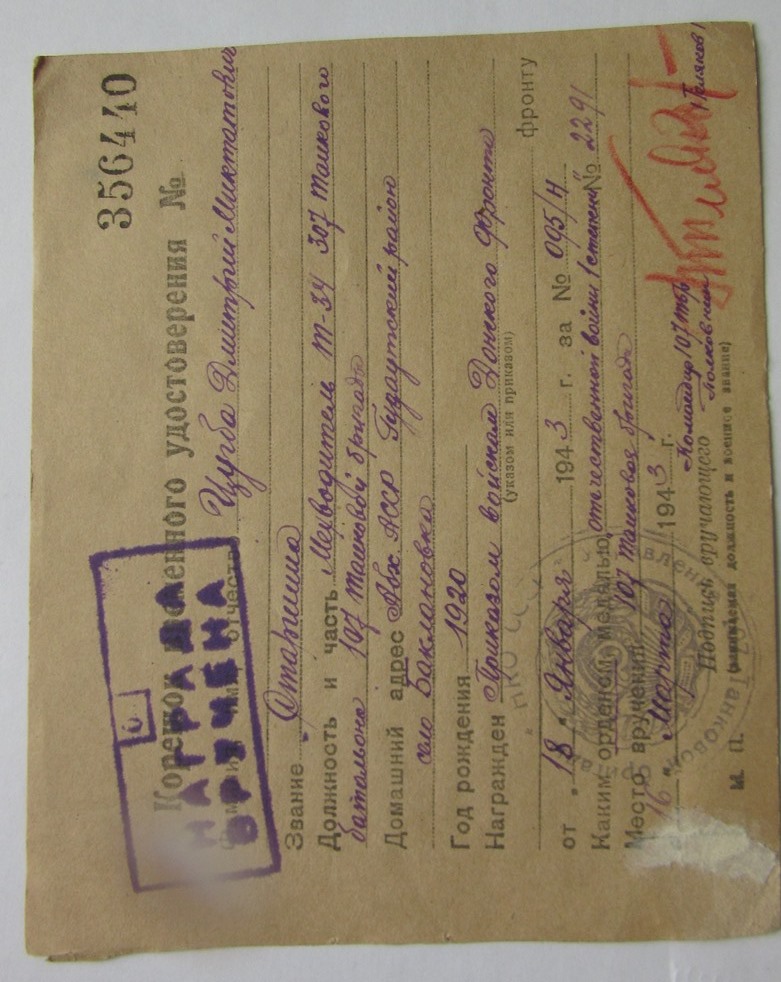 356440
Корешок временного удостоверения №
НАГРАДА
ВРУЧЕНА
отчество Цугба Дмитрий Миктатович
Звание Старшина
Должность и часть Мехводитель т-34 307 танкового
батальона 107 танковой бригады
Домашний адрес Абх АССР Гудаутский район
село Баклановка
Год рождения 1920
Награжден Приказом войскам Донского Фронта
(указом или приказом)
фронту
от „18" Января 1943 г. за № 095/н
Каким орденом, медалью отечественной войны 1 степени № 2291
Место вручения 107 танковая бригада
„16" Марта 1943 г.
Командир 107 тбр
Подпись вручающего Полковник
должность и военное звание)
М. П.